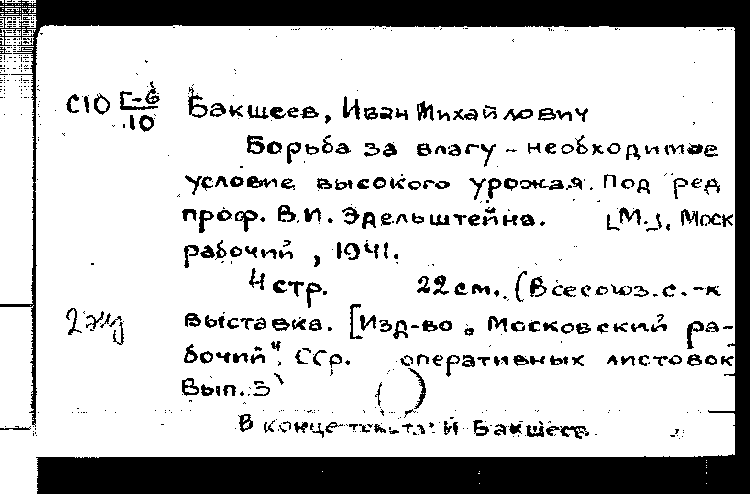 С10 Г-6/10 Бакшеев, Иван Михайлович
Борьба за влагу - необходимое
условие высокого урожая. Под ред
проф. В.И. Эдельштейна. [М.], Моск
рабочий, 1941.
4 стр. 22 см. (Всесоюз. с.-х
2 экз выставка. [Изд-во „Московский ра-
бочий". Сер. оперативных листовок
Вып. 3
В конце текста: И Бакшеев